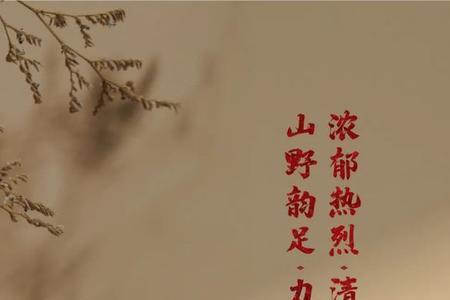 浓郁热烈·清
山野韵足·力